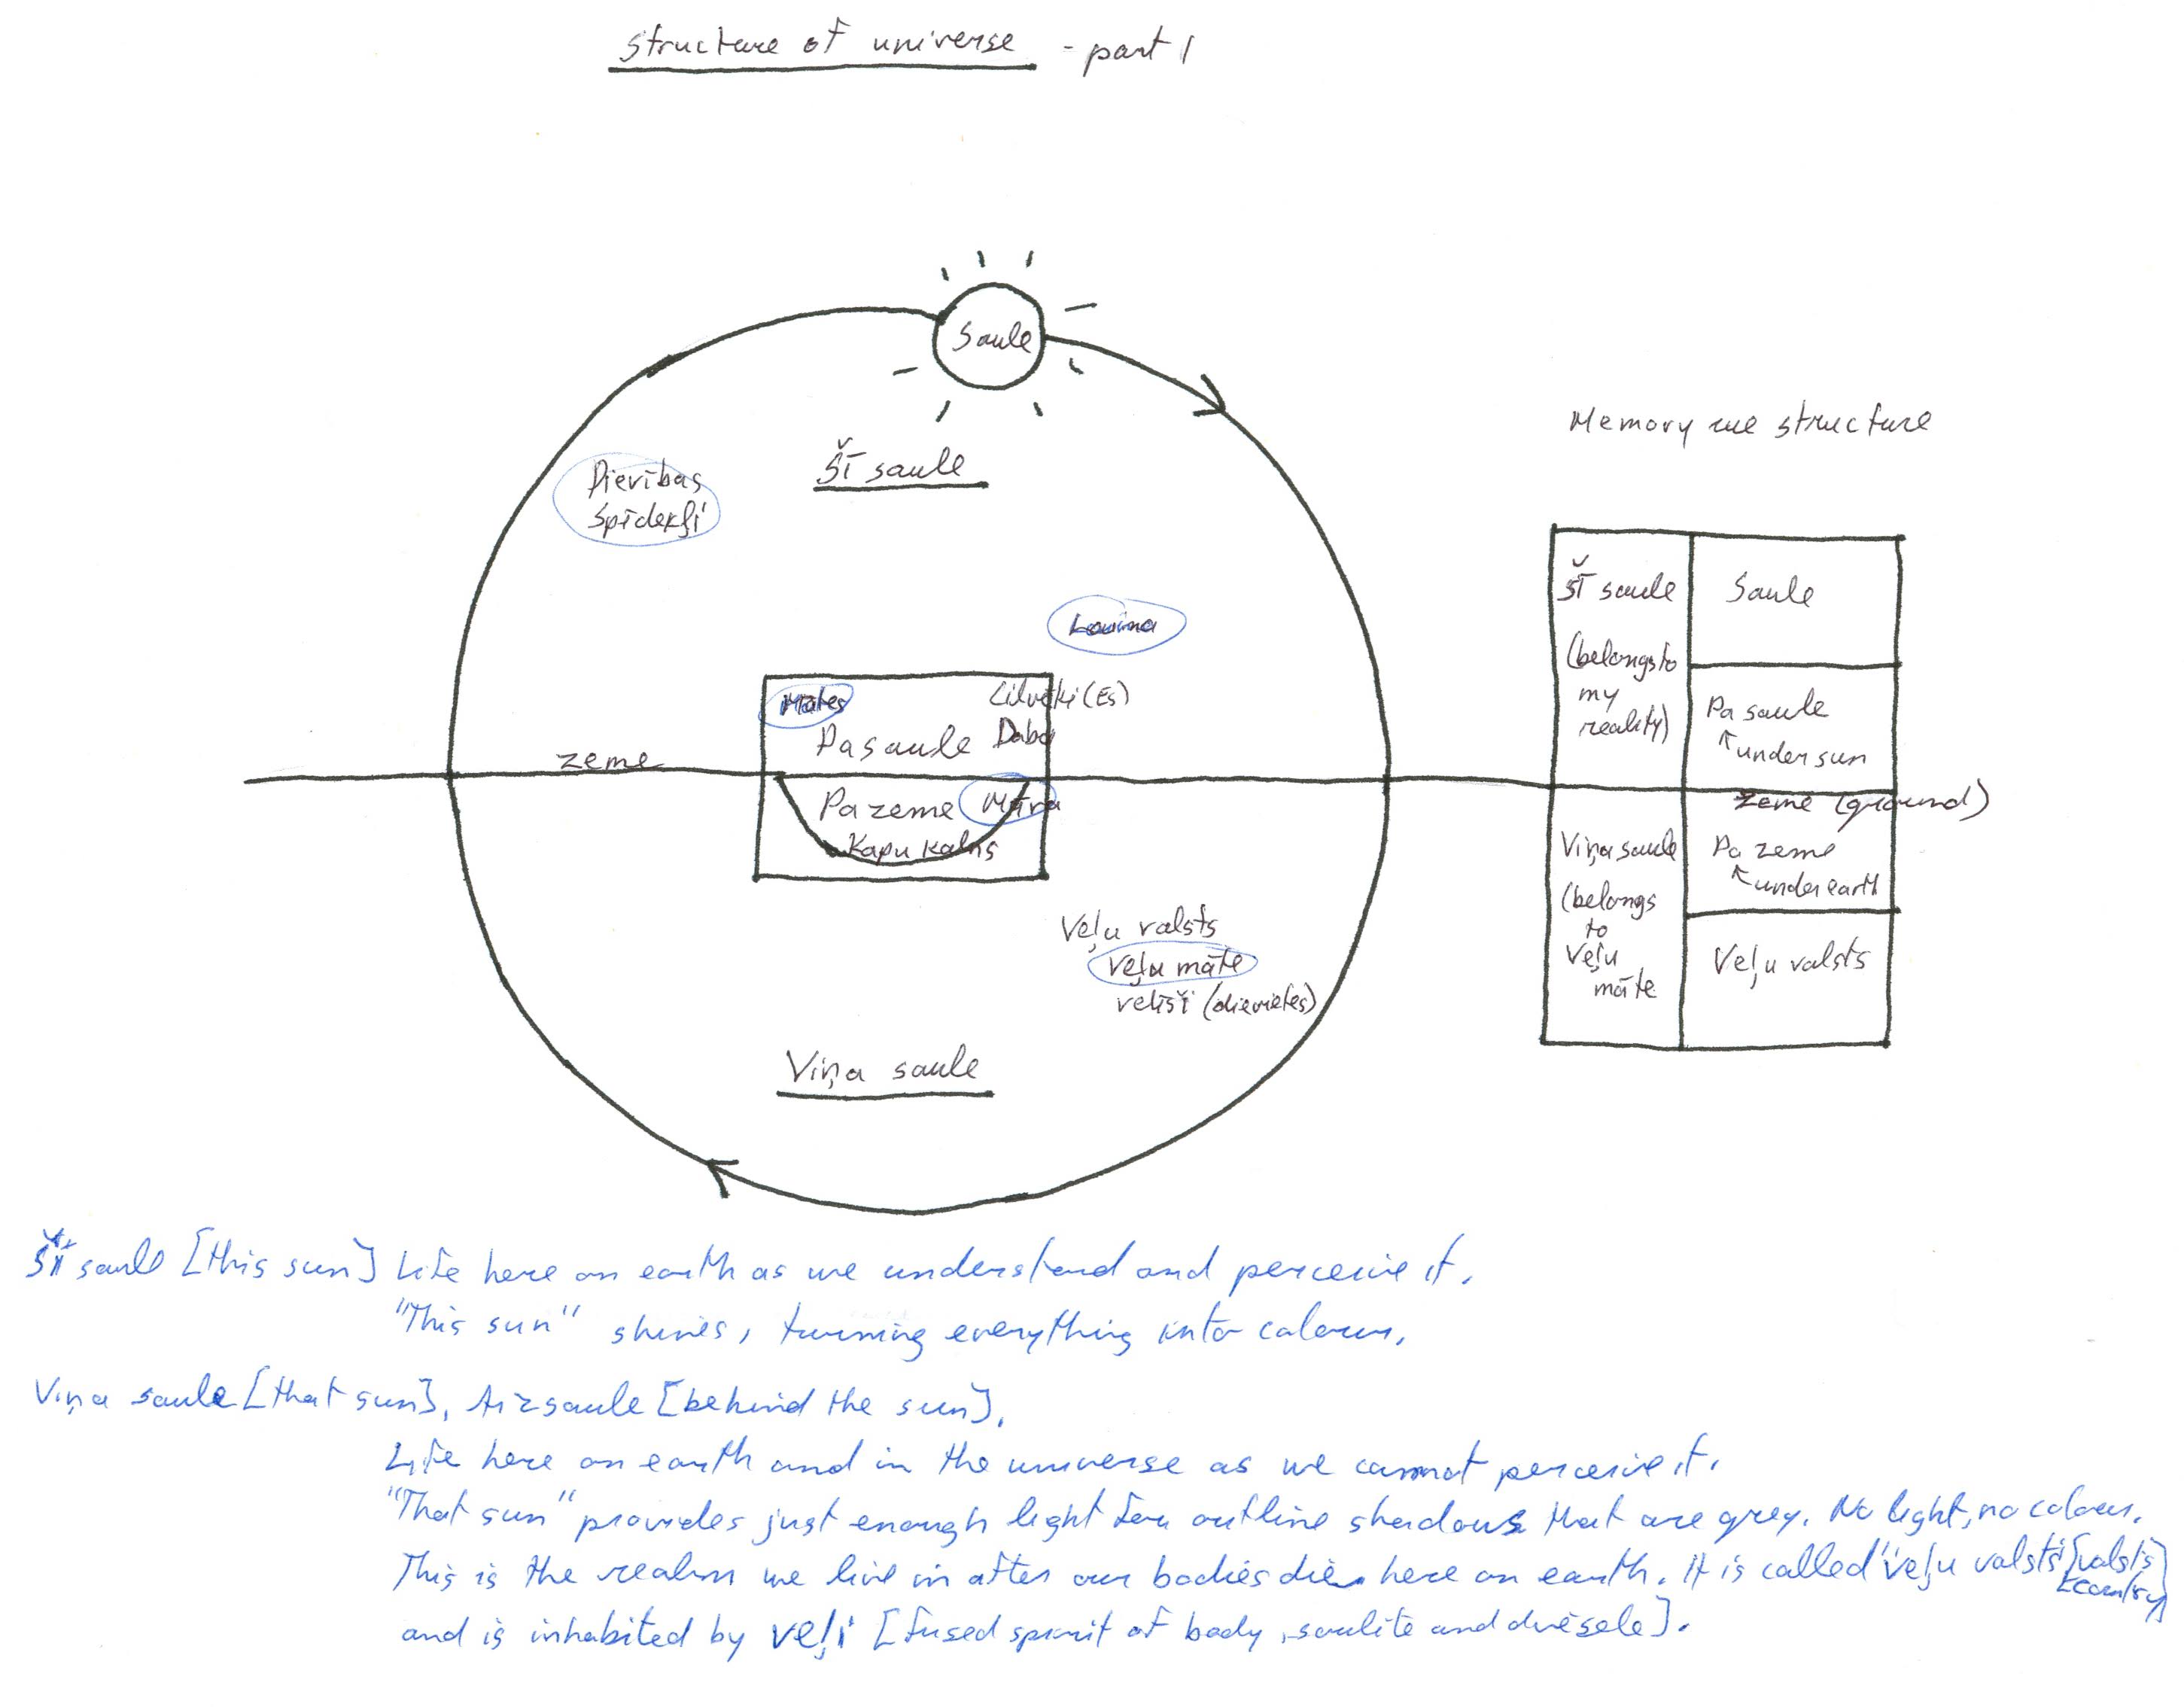 Structure of universe - part 1
Saule
Šī saule
Dievības
Spīdekļi
Laima
Mātes
Cilvēki (Es)
Pasaule
Daba
zeme
Pazeme
Māra
Kapu kalns
Veļu valsts
Veļu māte
velīši (dievietes)
Viņa saule
Memory structure
Šī saule
(belongs to
my
reality)
Saule
Pa saule
↖under sun
zeme (ground)
Viņa saule
(belongs
to
Veļu
māte
Pa zeme
↖under earth
Veļu valsts
Šī saule [this sun] Life here on earth as we understand and perceive it.
"This sun" shines, turning everything into colour.
Viņa saule [that sun], Aizsaule [behind the sun].
Life here on earth and in the universe as we cannot perceive it.
"That sun" provides just enough light for outline shadows that are grey. No light, no colour.
This is the realm we live in after our bodies die here on earth. It is called "Veļu valsts" [valsts
[country]
and is inhabited by veļi [fused spirit of body, saulīte and dvēsele].